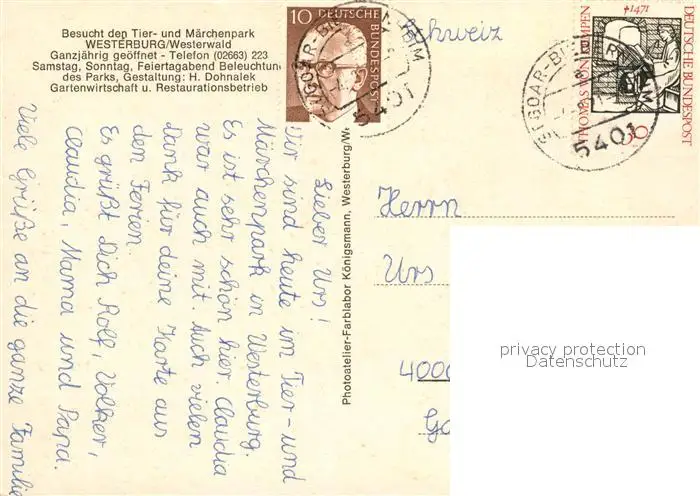 Besucht den Tier- und Märchenpark
WESTERBURG/Westerwald
Ganzjährig geöffnet - Telefon (02663) 223
Samstag, Sonntag, Feiertagabend Beleuchtung
des Parks, Gestaltung: H. Dohnalek
Gartenwirtschaft u. Restaurationsbetrieb
Lieber Urs!
Wir sind heute im Tier- und
Märchenpark in Westerburg.
Es ist sehr schön hier. Claudia
war auch mit. Auch vielen
Dank für deine Karte aus
den Ferien.
Es grüßt Dich Rolf, Volker,
Claudia, Mama und Papa.
Viele Grüße an die ganze Familie
Photoatelier-Farblabor Königsmann, Westerburg/We
10
DEUTSCHE BUNDESPOST
5401
Schweiz
†1471
THOMAS VON KEMPEN
DEUTSCHE BUNDESPOST
30
5401
Herrn
Urs
4000
privacy protection
Datenschutz